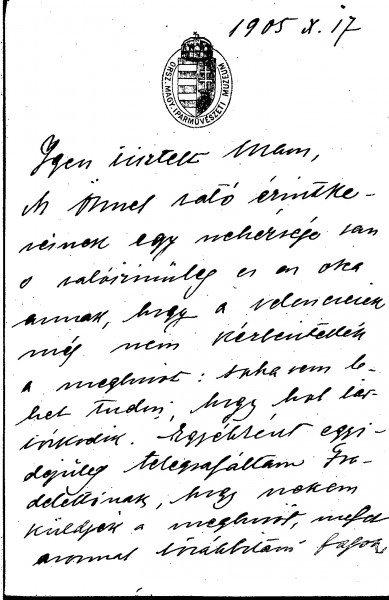 1905 X. 17
ORSZ. MAGY. IPARMŰVÉSZETI MUZEUM
Igen tisztelt Uram,
Az Önnel való érintke-
zésnek egy nehézsége van
s valószinüleg ez az oka
annak, hogy a velenceiek
még nem kézbesítették
a meghivót: soha sem le-
het tudni, hogy hol tar-
tózkodik. Egyébként egyi-
dejüleg telegrafáltam Fra-
delettónak, hogy nekem
küldjék a meghivót, melyet
azonnal továbbitani fogok